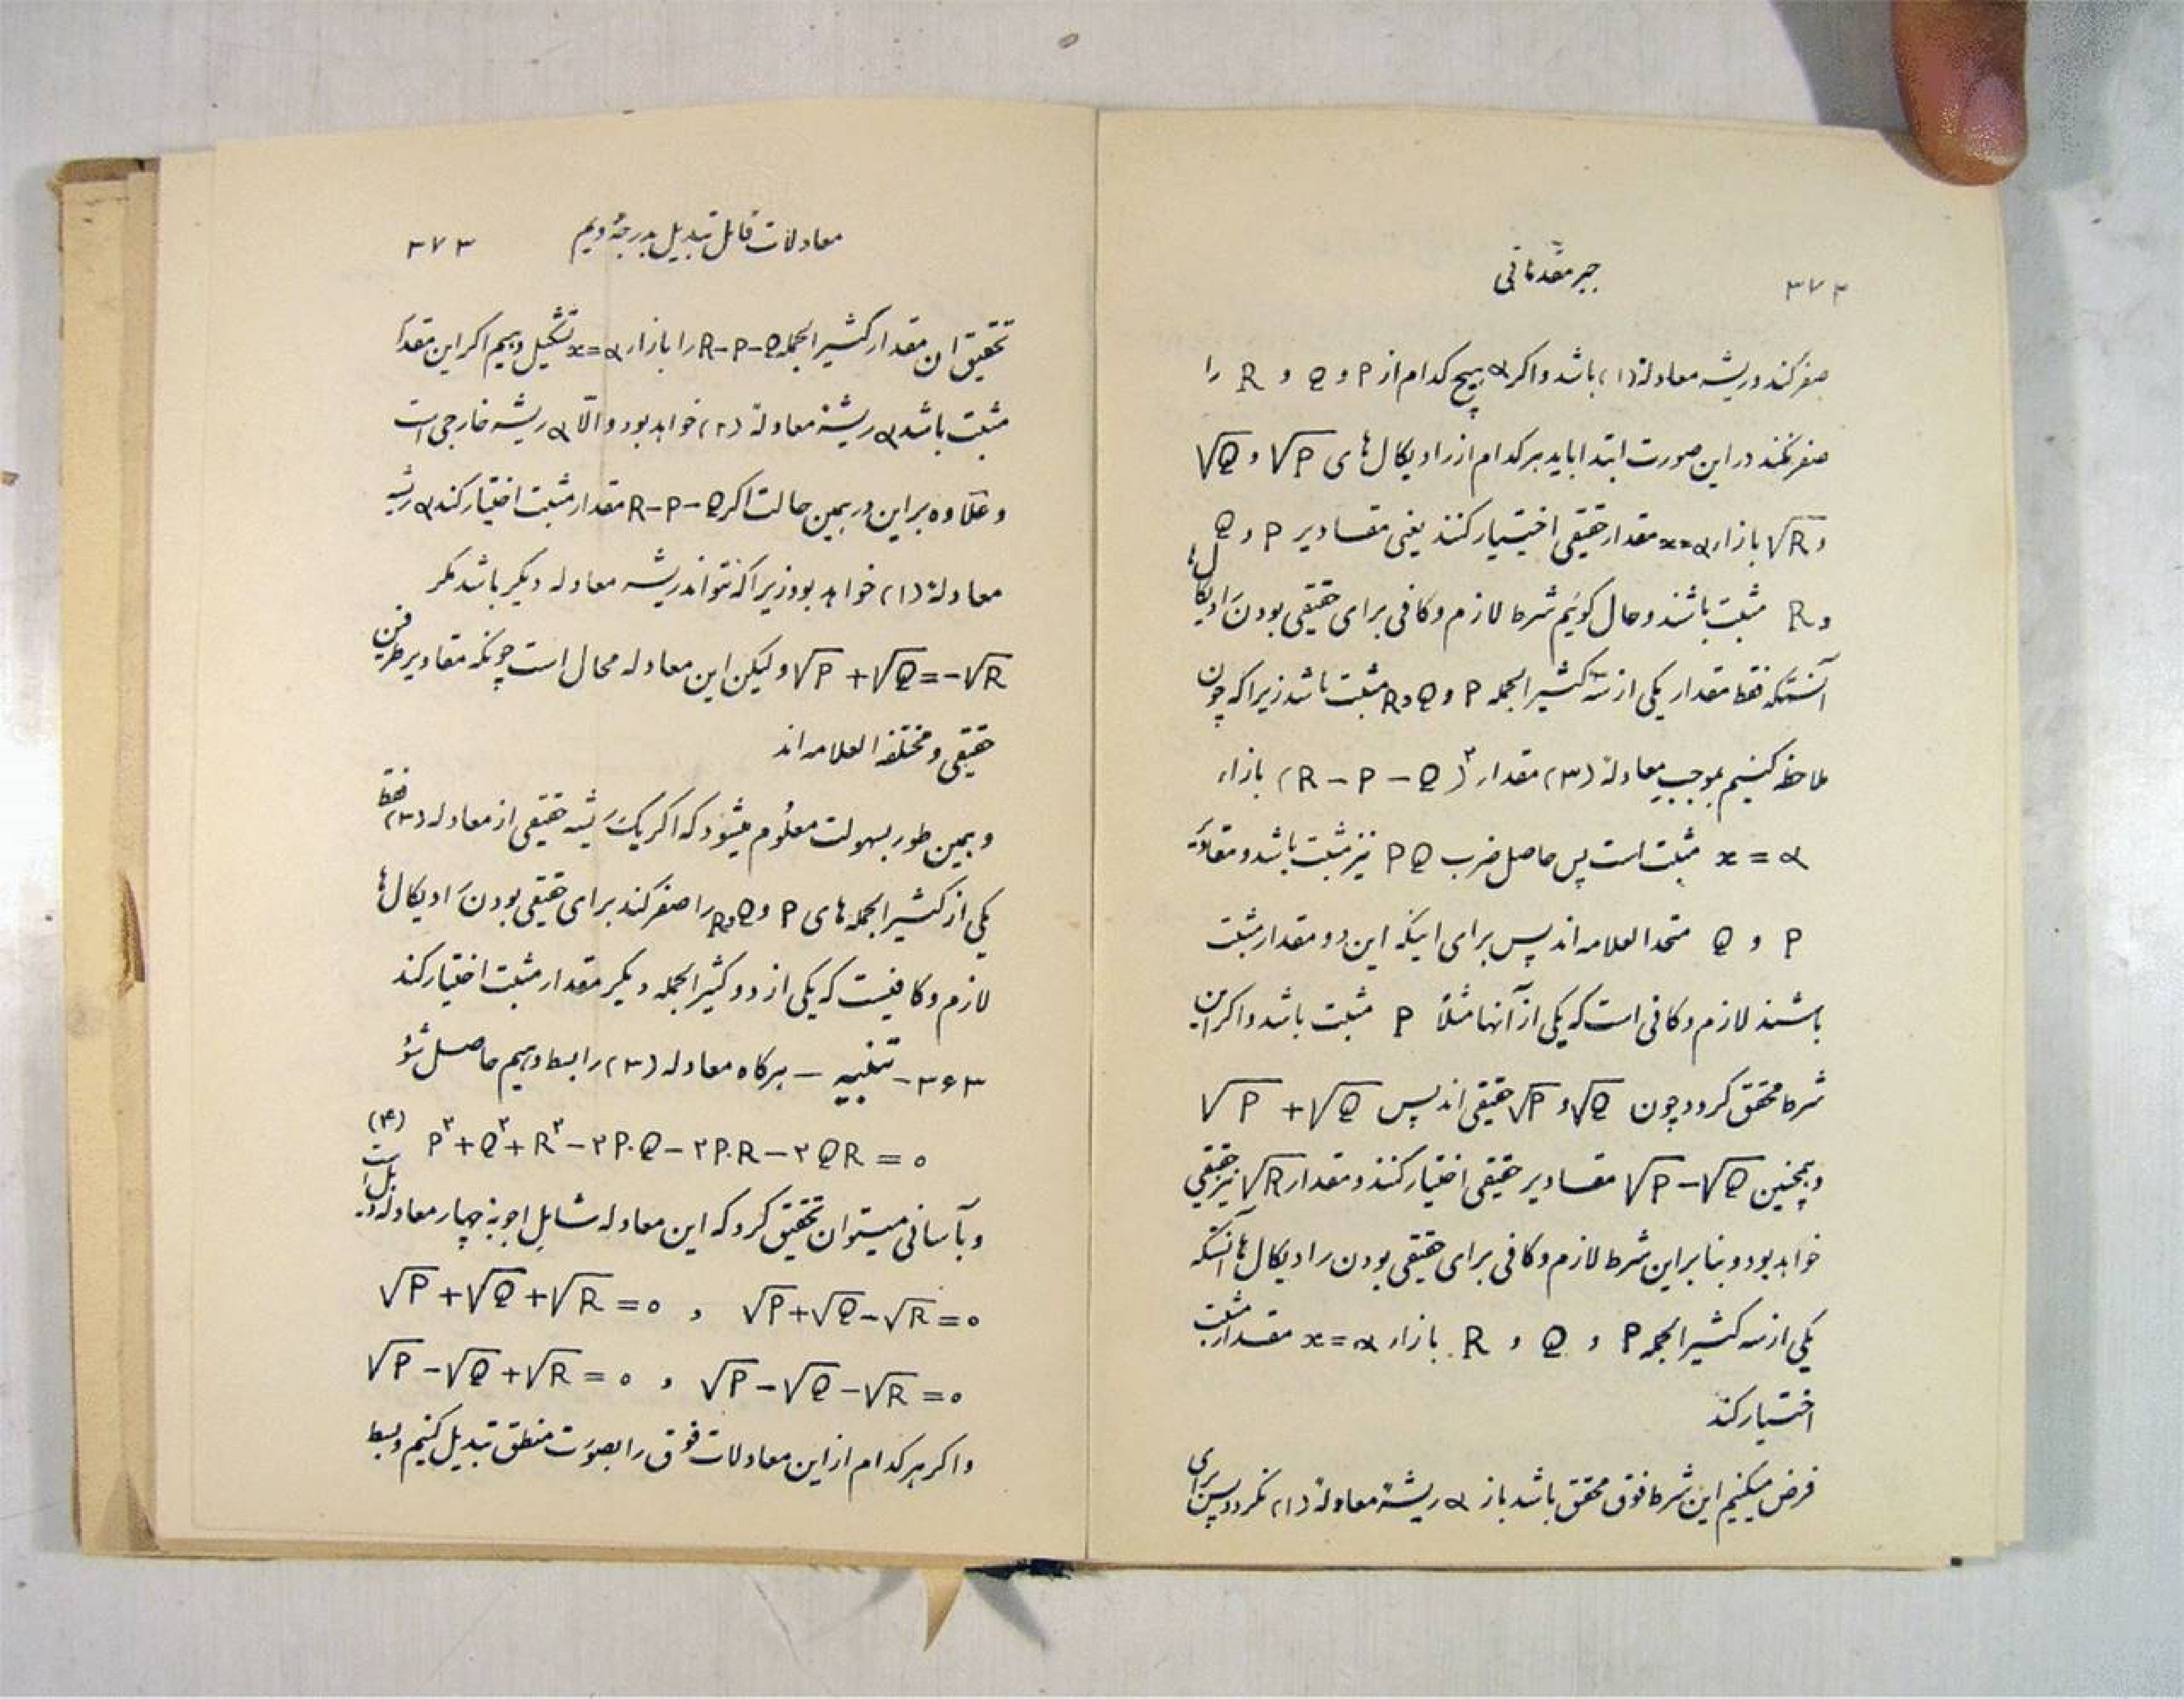 ۳۷۲ جبر مقدماتی
صفر کند و ریشه معادلهٔ (۱) باشد و اگر α هیچ کدام از P و Q و R را
صفر نکند در این صورت ابتدا باید هر کدام از رادیکال‌های √P و √Q
و √R بازاء x=α مقدار حقیقی اختیار کنند یعنی مقادیر P و Q
و R مثبت باشند و حال گوئیم شرط لازم و کافی برای حقیقی بودن رادیکال‌ها
آنستکه فقط مقدار یکی از سه کثیرالجمله P و Q و R مثبت باشد زیرا که چون
ملاحظه کنیم بموجب معادلهٔ (۳) مقدار (R – P – Q)² بازاء
x = α مثبت است پس حاصل ضرب PQ نیز مثبت باشد و مقادیر
P و Q متحدالعلامه اند پس برای اینکه این دو مقدار مثبت
باشند لازم و کافی است که یکی از آنها مثلاً P مثبت باشد و اگر این
شرط محقق گردد چون √Q و √P حقیقی اند پس √P + √Q
و همچنین √P – √Q مقادیر حقیقی اختیار کنند و مقدار √R نیز حقیقی
خواهد بود و بنا براین شرط لازم و کافی برای حقیقی بودن رادیکال‌ها آنستکه
یکی از سه کثیرالجمله P و Q و R بازاء x = α مقدار مثبت
اختیار کند
فرض میکنیم این شرط فوق محقق باشد باز α ریشهٔ معادلهٔ (۱) نگردد پس برای
معادلات قابل تبدیل بدرجهٔ دویم ۳۷۳
تحقیق آن مقدار کثیرالجمله R–P–Q را بازاء x=α تشکیل دهیم اگر این مقدار
مثبت باشد α ریشهٔ معادلهٔ (۲) خواهد بود و الّا α ریشه خارجی است
و علاوه بر این در همین حالت اگر R–P–Q مقدار مثبت اختیار کند α ریشه
معادلهٔ (۱) خواهد بود زیرا که نتواند ریشه معادله دیگر باشد مگر
√P + √Q = –√R و لیکن این معادله محال است چونکه مقادیر طرفین
حقیقی و مختلف العلامه اند
و همین طور بسهولت معلوم میشود که اگر یک ریشه حقیقی از معادله (۳) فقط
یکی از کثیرالجمله های P و Q و R را صفر کند برای حقیقی بودن رادیکال‌ها
لازم و کافیست که یکی از دو کثیرالجمله دیگر مقدار مثبت اختیار کند
۳۶۳- تنبیه – هرگاه معادله (۳) را بسط دهیم حاصل شود
P² + Q² + R² – ۲P.Q – ۲P.R – ۲QR = ۰ (۴)
و بآسانی میتوان تحقیق کرد که این معادله شامل اجوبهٔ چهار معادلهٔ ذیل است
√P + √Q + √R = ۰ , √P + √Q – √R = ۰
√P – √Q + √R = ۰ , √P – √Q – √R = ۰
و اگر هر کدام از این معادلات فوق را بصورت منطق تبدیل کنیم و بسط